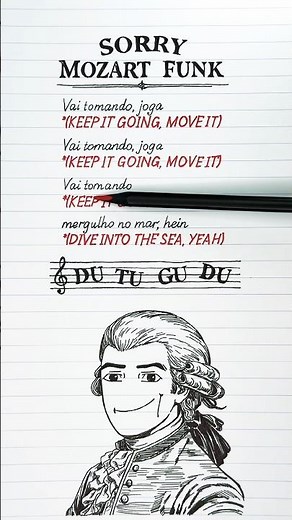 SORRY
MOZART FUNK
Vai tomando, joga
*(KEEP IT GOING, MOVE IT)
Vai tomando, joga
*(KEEP IT GOING, MOVE IT)
Vai tomando
*(KEEP IT G
mergulho no mar, hein
*(DIVE INTO THE SEA, YEAH)
DU TU GU DU